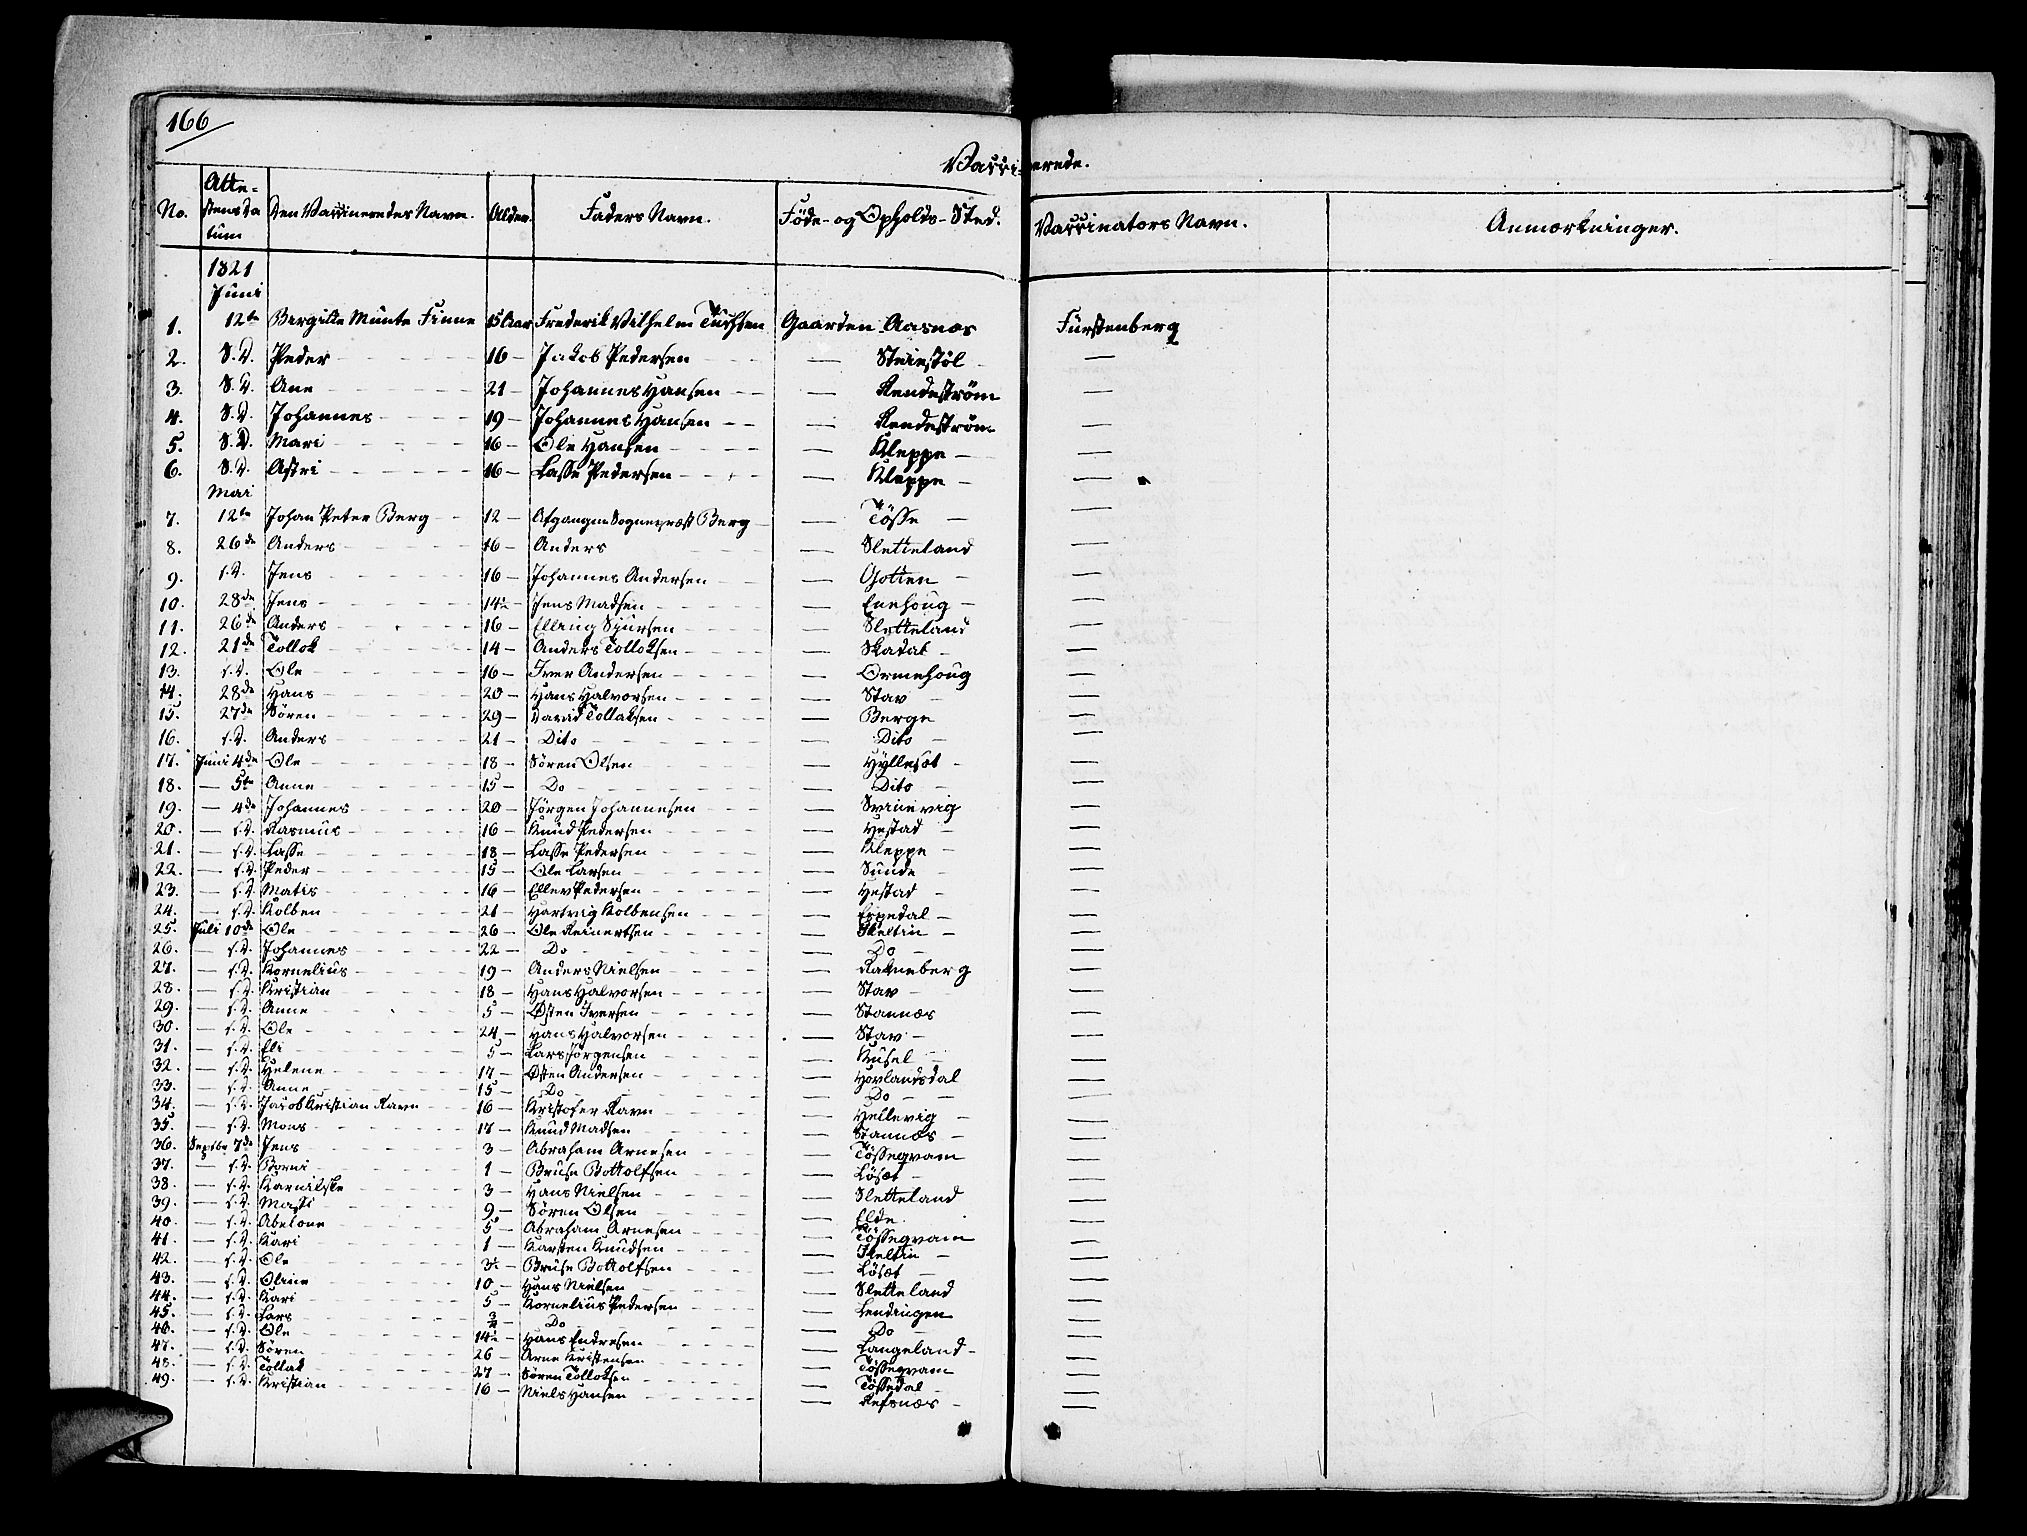 166
Vaccinerede.
No. Attestens Datum Den Vaccineredes Navn. Alder. Faders Navn. Føde- og Opholds-Sted. Vaccinators Navn. Anmærkninger.
1821
Juni
1. 12te Bergitte Munte Finne 15 Aar Frederik Vilhelm Gaarden Aasnæs Fürstenberg
2. S. D. Peder 16 — Jakob Pedersen — Steiestøl —
3. S. D. Ane 21 — Johannes Hansen — Rendestrøm —
4. S. D. Johannes 19 — Johannes Hansen — Rendestrøm —
5. S. D. Mari 16 — Ole Hansen — Kleppe —
6. S. D. Astri 16 — Lasse Pedersen — Kleppe —
Mai
7. 12te Johan Peter Berg 12 — Afgangne Sognepræst Berg — Tøsse —
8. 26de Anders 16 — Anders — Sletteland —
9. s. D. Jens 16 — Johannes Andersen — Gotten —
10. 28de Jens 14½ — Jens Madsen — Enehoug —
11. 26de Anders 16 — Elling Sjursen — Sletteland —
12. 21de Tollak 14 — Anders Tollaksen — Skadal —
13. s. D. Ole 16 — Iver Andersen — Ormehoug —
14. 28de Hans 20 — Hans Halvorsen — Stav —
15. 27de Søren 29 — David Tollaksen — Berge —
16. s. D. Anders 21 — Dito — Dito —
17. Juni 4de Ole 18 — Søren Olsen — Hyllesæt —
18. — 5te Anne 15 — Do — Dito —
19. — 4de Johannes 20 — Jørgen Johannesen — Svinevig —
20. — s. D. Rasmus 16 — Knud Pedersen — Hestad —
21. — s. D. Lasse 18 — Lasse Pedersen — Kleppe —
22. — s. D. Peder 15 — Ole Larsen — Sunde —
23. — s. D. Matis 16 — Ellev Pedersen — Hestad —
24. — s. D. Kolben 21 — Hartvig Kolbensen — Espedal —
25. Juli 10de Ole 26 — Ole Reinertsen — Skeltin —
26. — s. D. Johannes 22 — Do — Do —
27. — s. D. Kornelius 19 — Anders Nielsen — Rakneberg —
28. — s. D. Kristian 18 — Hans Halvorsen — Stav —
29. — s. D. Anne 5 — Østen Iversen — Stannæs —
30. — s. D. Ole 24 — Hans Halvorsen — Stav —
31. — s. D. Eli 5 — Lars Jørgensen — Kusel —
32. — s. D. Helene 17 — Østen Andersen — Hovlandsdal —
33. — s. D. Anne 15 — Do — Do —
34. — s. D. Jacob Kristian Ravn 16 — Kristofer Ravn — Hellevig —
35. — s. D. Mons 17 — Knud Madsen — Stannæs —
36. Septbr 7de Jens 3 — Abraham Arnesen — Tøssegvam —
37. — s. D. Borni 1 — Bruse Bottolfsen — Løsæt —
38. — s. D. Karnilske 3 — Hans Nielsen — Sletteland —
39. — s. D. Massi 9 — Søren Olsen — Elde —
40. — s. D. Abelone 5 — Abraham Arnesen — Tøssegvam —
41. — s. D. Kari 1 — Karsten Knudsen — Skeltin —
42. — s. D. Ole 3½ — Bruse Bottolfsen — Løsæt —
43. — s. D. Oline 10 — Hans Nielsen — Sletteland —
44. — s. D. Kari 5 — Kornelius Pedersen — Lendingen —
45. — s. D. Lars Do — Do —
46. — s. D. Ole 14½ — Hans Endresen — Langeland —
47. — s. D. Søren 26 — Arne Kristensen — Tøssegvam —
48. — s. D. Tollak 27 — Søren Tollaksen — Tøssedal —
49. — s. D. Kristian 16 — Niels Hansen — Refsnæs —